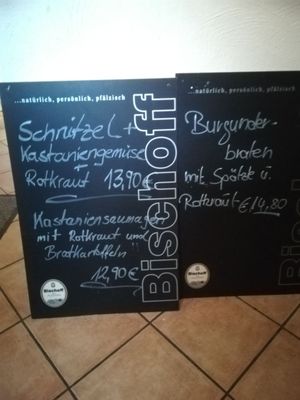 ...natürlich, persönlich, pfälzisch
Schnitzel +
Kastaniengemüse
Rotkraut 13,90€
Kastaniensaumagen
mit Rotkraut und
Bratkartoffeln
12,90€
Bischoff
Bischoff
...natürlich, persönlich, pfälzisch
Burgunder-
braten
mit Spätzle u.
Rotkraut €14,80
Bischoff